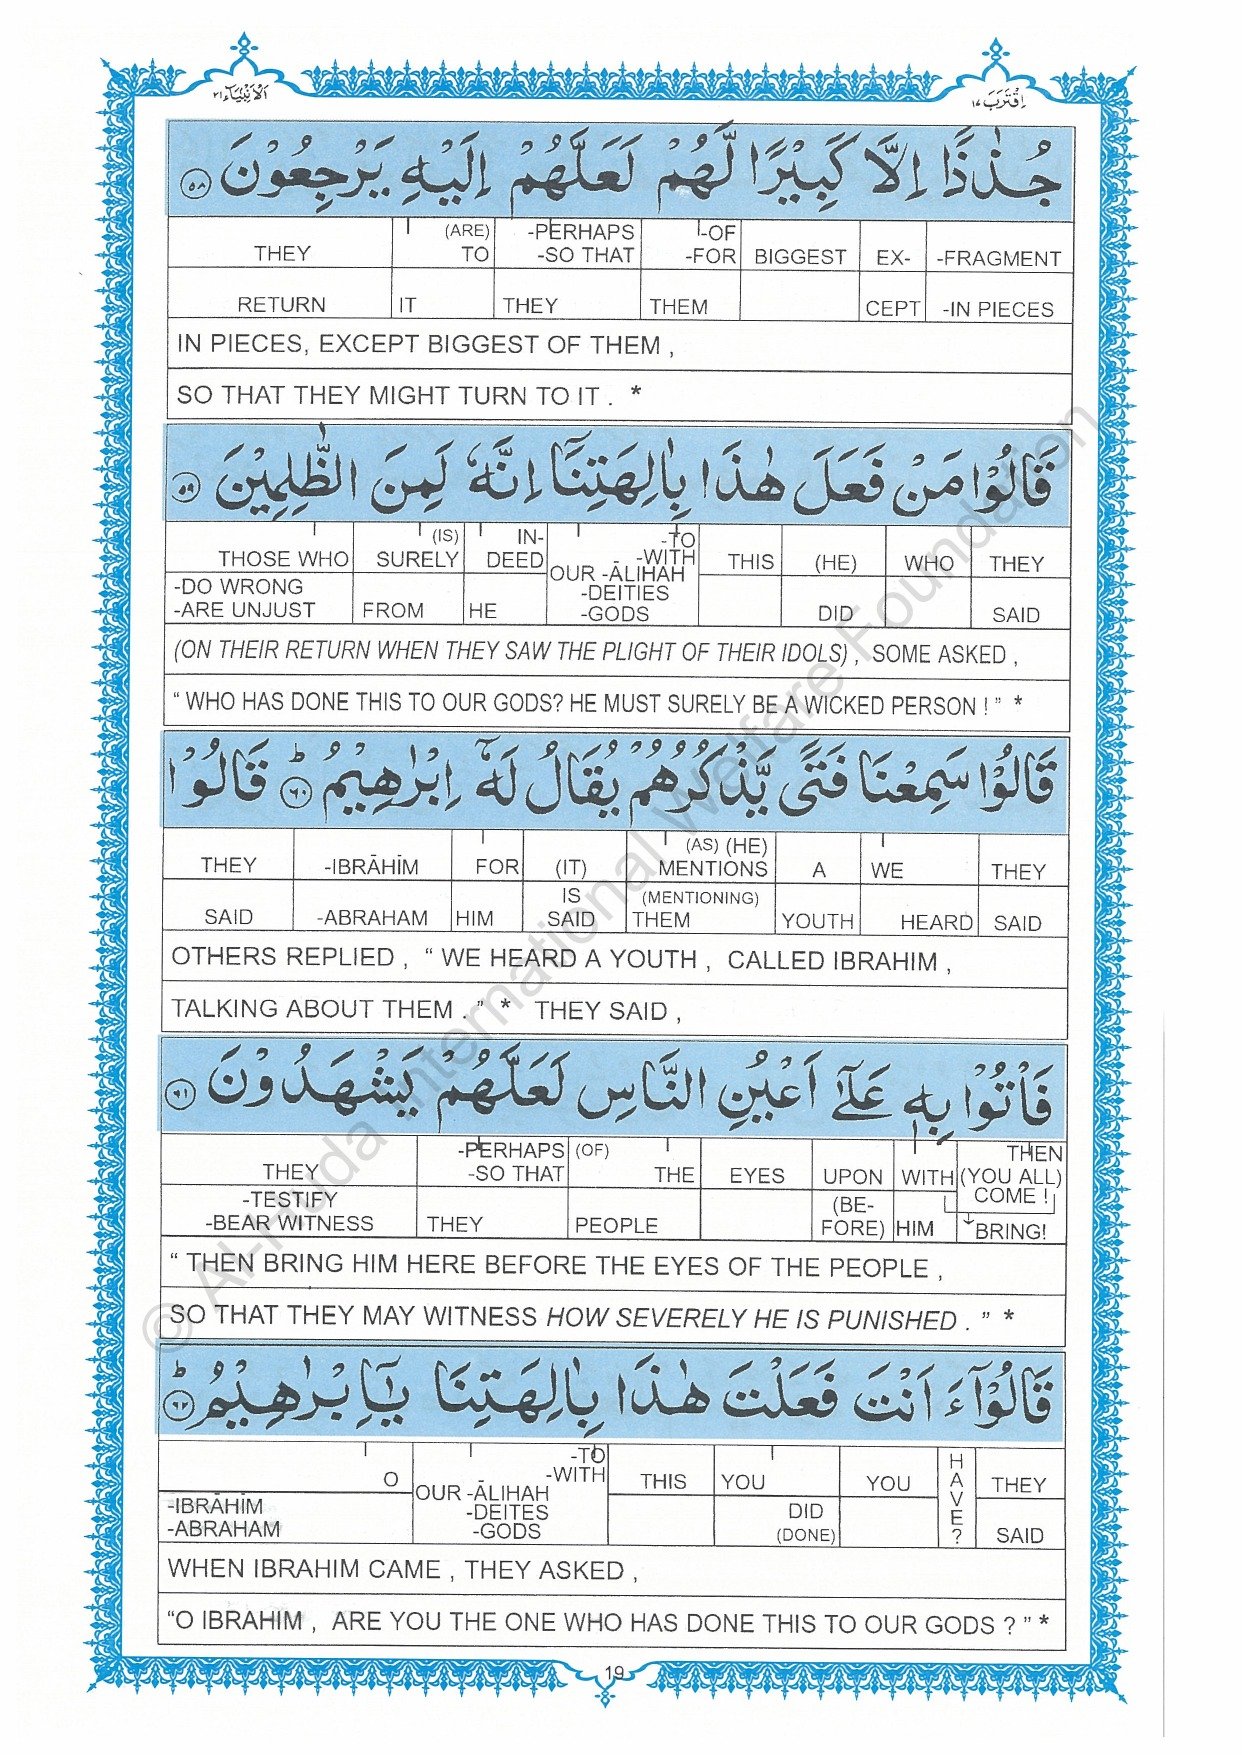 اقْتَرَبَ ١٧
الْاَنْبِيَآء ٢١
جُذٰذًا اِلَّا كَبِيْرًا لَّهُمْ لَعَلَّهُمْ اِلَيْهِ يَرْجِعُوْنَ ٥٨
THEY (ARE) TO -PERHAPS -SO THAT -OF -FOR BIGGEST EX- -FRAGMENT
RETURN IT THEY THEM CEPT -IN PIECES
IN PIECES, EXCEPT BIGGEST OF THEM ,
SO THAT THEY MIGHT TURN TO IT . *
قَالُوْا مَنْ فَعَلَ هٰذَا بِاٰلِهَتِنَآ اِنَّهٗ لَمِنَ الظّٰلِمِيْنَ ٥٩
THOSE WHO (IS) SURELY IN- DEED -TO -WITH THIS (HE) WHO THEY
-DO WRONG -ARE UNJUST FROM HE OUR -ĀLIHAH -DEITIES -GODS DID SAID
(ON THEIR RETURN WHEN THEY SAW THE PLIGHT OF THEIR IDOLS) , SOME ASKED ,
“ WHO HAS DONE THIS TO OUR GODS? HE MUST SURELY BE A WICKED PERSON ! ” *
قَالُوْا سَمِعْنَا فَتًى يَّذْكُرُهُمْ يُقَالُ لَهٗٓ اِبْرٰهِيْمُ ؕ ٦٠ قَالُوْا
THEY -IBRĀHĪM FOR (IT) (AS) (HE) MENTIONS A WE THEY
SAID -ABRAHAM HIM IS SAID (MENTIONING) THEM YOUTH HEARD SAID
OTHERS REPLIED , “ WE HEARD A YOUTH , CALLED IBRAHIM ,
TALKING ABOUT THEM . ” * THEY SAID ,
فَاْتُوْا بِهٖ عَلٰٓى اَعْيُنِ النَّاسِ لَعَلَّهُمْ يَشْهَدُوْنَ ٦١
THEY -PERHAPS -SO THAT (OF) THE EYES UPON WITH THEN (YOU ALL) COME !
-TESTIFY -BEAR WITNESS THEY PEOPLE (BE- FORE) HIM BRING!
“ THEN BRING HIM HERE BEFORE THE EYES OF THE PEOPLE ,
SO THAT THEY MAY WITNESS HOW SEVERELY HE IS PUNISHED . ” *
قَالُوْٓا ءَاَنْتَ فَعَلْتَ هٰذَا بِاٰلِهَتِنَا يٰٓاِبْرٰهِيْمُ ؕ ٦٢
O -TO -WITH THIS YOU YOU HAVE? THEY
-IBRĀHĪM -ABRAHAM OUR -ĀLIHAH -DEITES -GODS DID (DONE) SAID
WHEN IBRAHIM CAME , THEY ASKED ,
“O IBRAHIM , ARE YOU THE ONE WHO HAS DONE THIS TO OUR GODS ? ” *
19
© Al-huda International Welfare Foundation